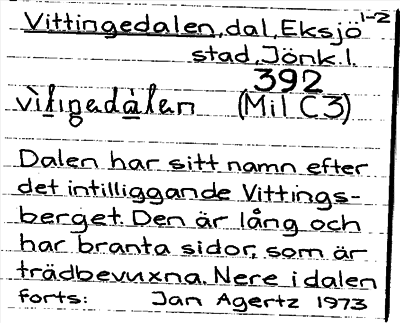 1-2
Vittingedalen, dal, Eksjö
stad, Jönk. l.
392
vìlıŋedàlen (Mil C3)
Dalen har sitt namn efter
det intilliggande Vittings-
berget. Den är lång och
har branta sidor, som är
trädbevuxna. Nere i dalen
forts: Jan Agertz 1973